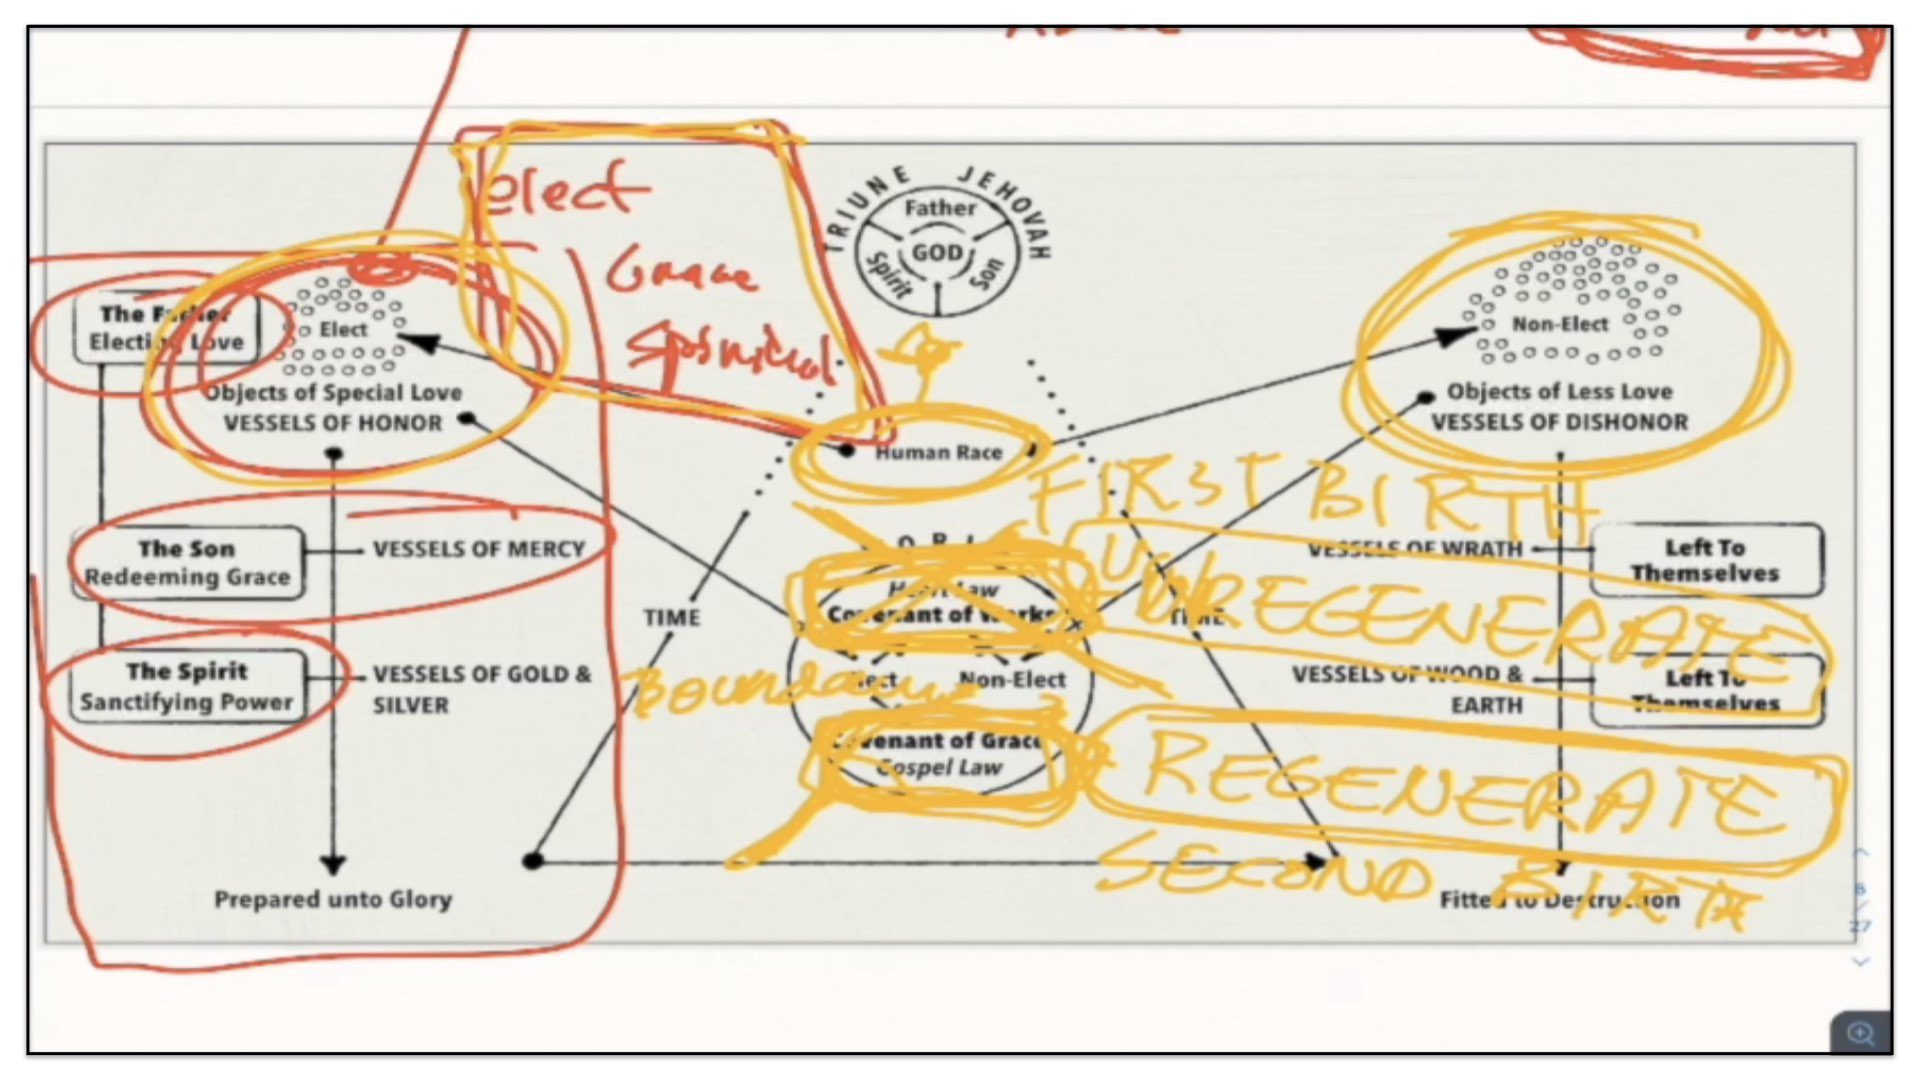 elect
Grace
Spiritual
TRIUNE JEHOVAH
Father
GOD
Spirit
Son
The Father
Electing Love
Elect
Objects of Special Love
VESSELS OF HONOR
Human Race
Non-Elect
Objects of Less Love
VESSELS OF DISHONOR
FIRST BIRTH
The Son
Redeeming Grace
VESSELS OF MERCY
Heart Law
Covenant of Works
VESSELS OF WRATH
Left To
Themselves
UNREGENERATE
TIME
TIME
The Spirit
Sanctifying Power
VESSELS OF GOLD &
SILVER
Elect
Non-Elect
VESSELS OF WOOD &
EARTH
Left To
Themselves
Covenant of Grace
Gospel Law
REGENERATE
SECOND BIRTH
Prepared unto Glory
Fitted to Destruction
8
/
27